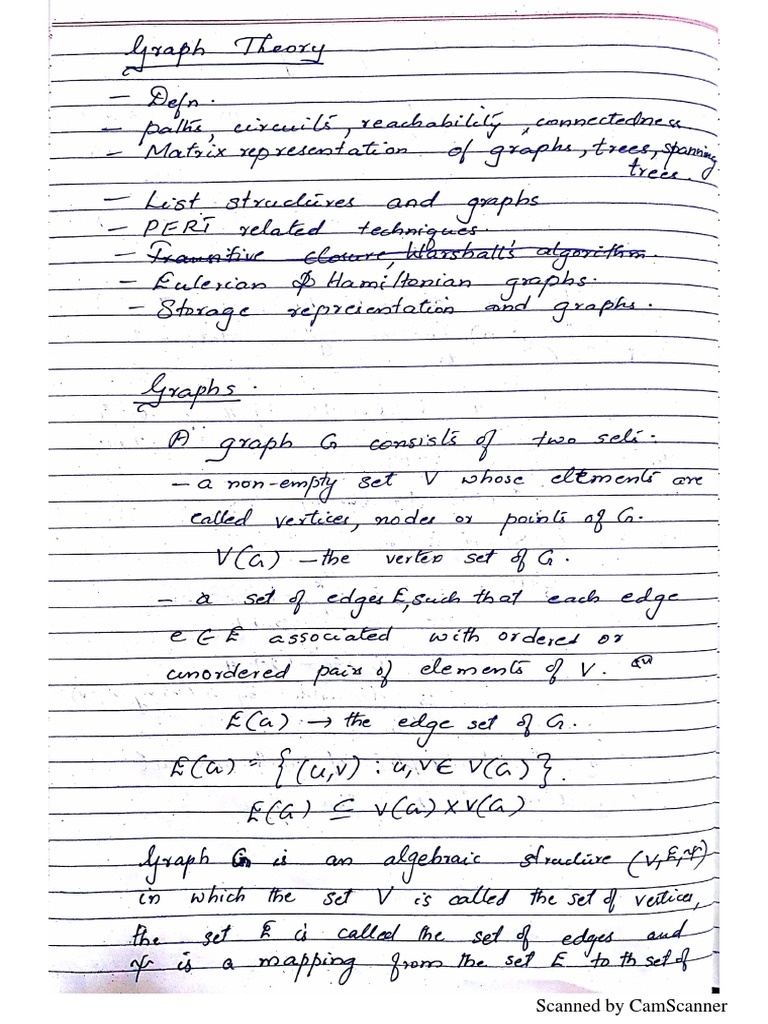 Graph Theory
- Defn.
- paths, circuits, reachability, connectedness
- Matrix representation of graphs, trees, spanning
trees.
- List structures and graphs
- PERT related techniques.
- Transitive closure, Warshall's algorithm.
- Eulerian & Hamiltonian graphs.
- Storage representation and graphs.
Graphs.
A graph G consists of two sets.
- a non-empty set V whose elements are
called vertices, nodes or points of G.
V(G) - the vertex set of G.
- a set of edges E, such that each edge
e ∈ E associated with ordered or
unordered pairs of elements of V.
E(G) → the edge set of G.
E(G) = {(u,v) : u,v ∈ V(G)}.
E(G) ⊆ V(G) X V(G)
Graph G is an algebraic structure (V, E, ψ)
in which the set V is called the set of vertices,
the set E is called the set of edges and
ψ is a mapping from the set E to th set of
Scanned by CamScanner